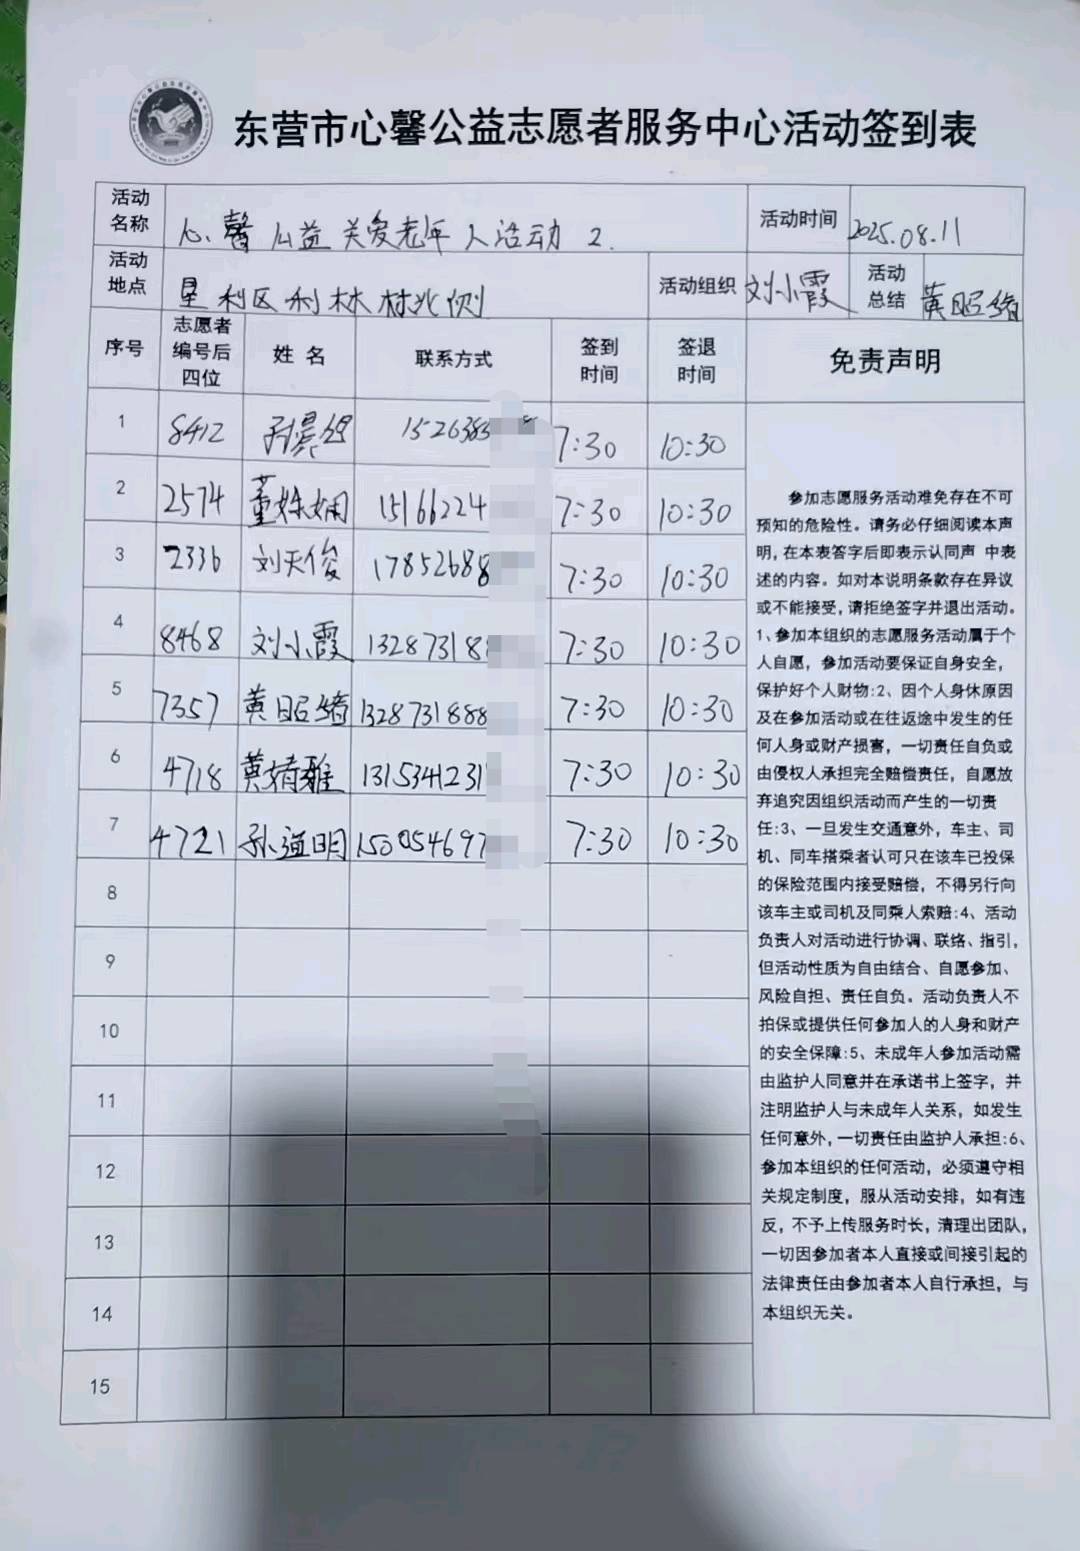 东营市心馨公益志愿者服务中心活动签到表
活动名称 心馨公益关爱老年人活动2. 活动时间 2025.08.11
活动地点 垦利区利林村北侧 活动组织 刘小霞 活动总结 黄昭绪
序号 志愿者编号后四位 姓名 联系方式 签到时间 签退时间 免责声明
1 8412 1526383 7:30 10:30
2 2574 董姝娴 15166224 7:30 10:30
3 2336 刘天俊 17852688 7:30 10:30
4 8468 刘小霞 132873188 7:30 10:30
5 7357 黄昭绪 1328731888 7:30 10:30
6 4718 黄婧雅 1315341231 7:30 10:30
7 4721 孙溢明 150054697 7:30 10:30
8
9
10
11
12
13
14
15
参加志愿服务活动难免存在不可
预知的危险性。请务必仔细阅读本声
明,在本表答字后即表示认同声 中表
述的内容。如对本说明条款存在异议
或不能接受,请拒绝签字并退出活动。
1、参加本组织的志愿服务活动属于个
人自愿，参加活动要保证自身安全，
保护好个人财物:2、因个人身休原因
及在参加活动或在往返途中发生的任
何人身或财产损害，一切责任自负或
由侵权人承担完全赔偿责任，自愿放
弃追究因组织活动而产生的一切责
任:3、一旦发生交通意外，车主、司
机、同车搭乘者认可只在该车已投保
的保险范围内接受赔偿，不得另行向
该车主或司机及同乘人索赔:4、活动
负责人对活动进行协调、联络、指引，
但活动性质为自由结合、自愿参加、
风险自担、责任自负。活动负责人不
拍保或提供任何参加人的人身和财产
的安全保障:5、未成年人参加活动需
由监护人同意并在承诺书上签字，并
注明监护人与未成年人关系，如发生
任何意外,一切责任由监护人承担:6、
参加本组织的任何活动，必须遵守相
关规定制度，服从活动安排，如有违
反，不予上传服务时长，清理出团队,
一切因参加者本人直接或间接引起的
法律责任由参加者本人自行承担，与
本组织无关。